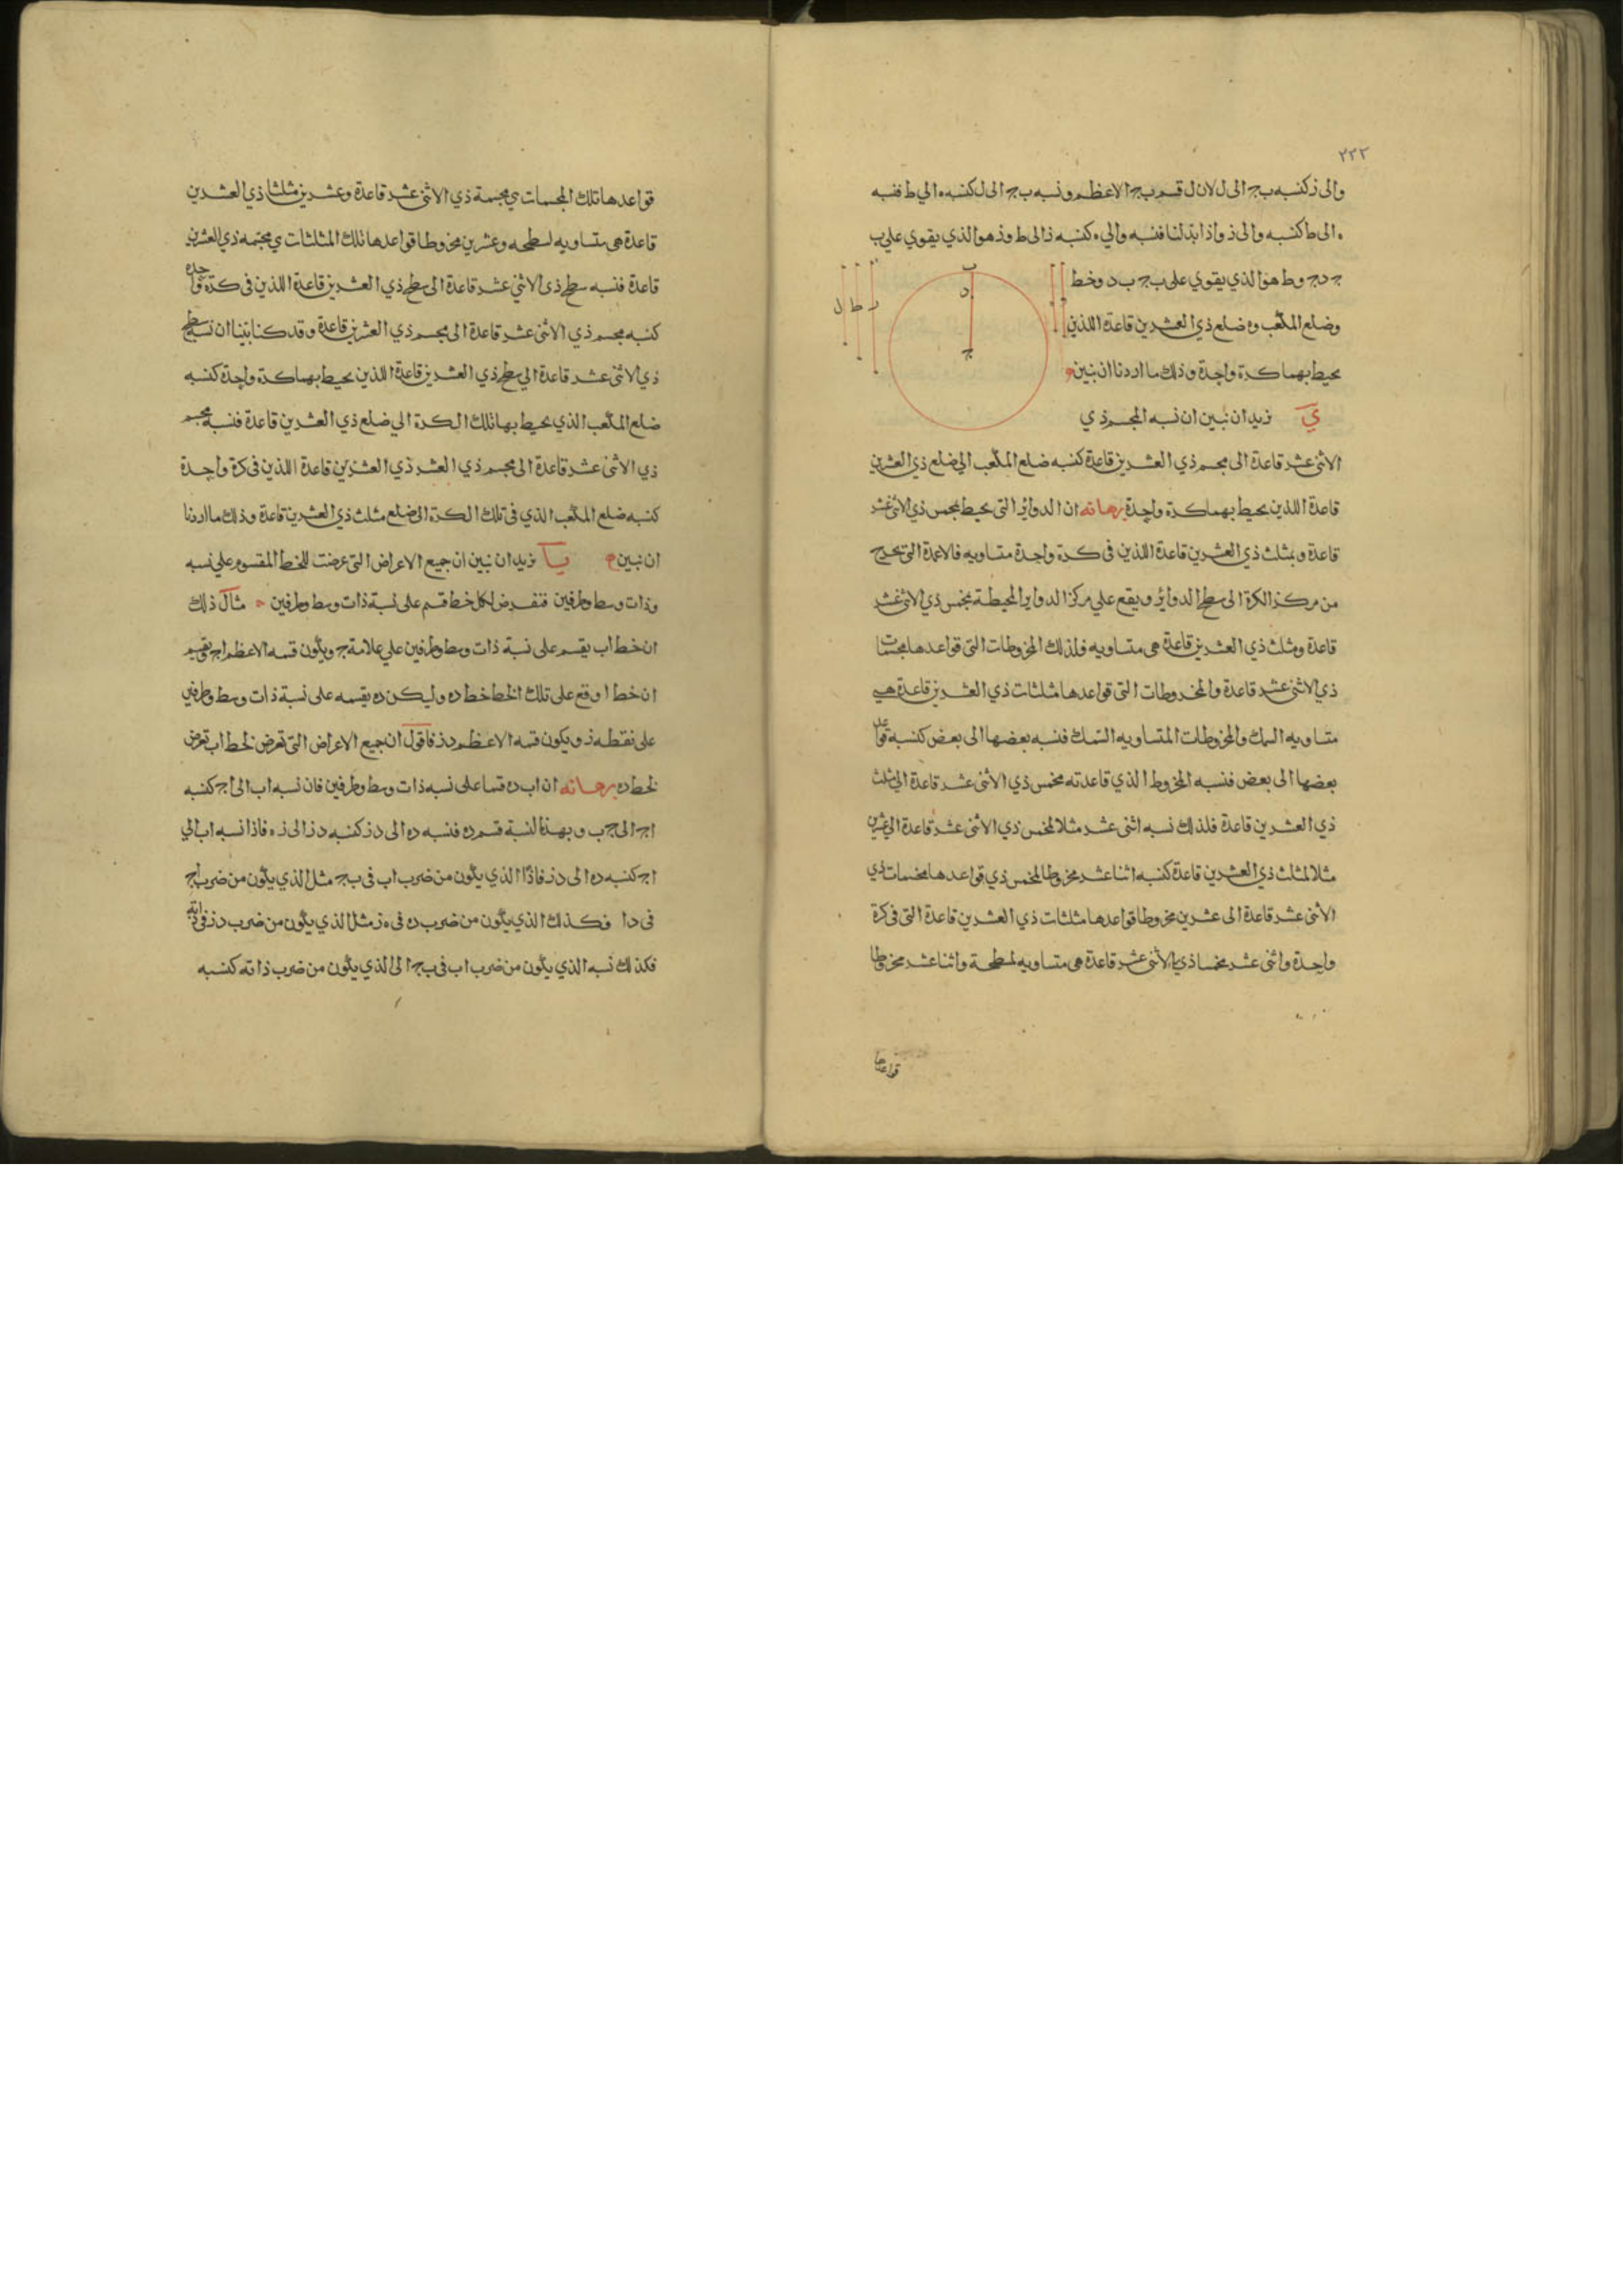 ٢٢٢
والى ز كنسبه ب ج الى ل لان ل قسم ب ج الاعظم ونسبه ب ج الى ل كنسبه ه الي ط فنسبه
ه الى ط كنسبه والى ز واذا بدلنا فنسبه والي ه كنسبه ز الى ط وز هو الذي يقوي علي ب
ج د ج وط هو الذي يقوي على ب ج ب د وخط
وضلع المكعب وه ضلع ذي العشرين قاعدة اللذين
يحيط بهما كرة واحدة وذلك ما اردنا ان نبين
ي نريد ان نبين ان نسبه المجسم ذي
الاثنى عشر قاعدة الى مجسم ذي العشرين قاعدة كنسبه ضلع المكعب الي ضلع ذي العشرين
قاعدة اللذين يحيط بهما كرة واحدة برهانه ان الدواير التي يحيط بمخمس ذي الاثنى عشر
قاعدة وبمثلث ذي العشرين قاعدة اللذين فى كرة واحدة متساويه فالاعمدة التى تخرج
من مركز الكرة الى سطح الدواير ويقع علي مركز الدواير المحيطة بمخمس ذي الاثنى عشر
قاعدة ومثلث ذي العشرين قاعدة هى متساويه فلذلك المخروطات التى قواعدها مخمسات
ذي الاثنى عشر قاعدة والمخروطات التى قواعدها مثلثات ذي العشرين قاعدة هي
متساويه السمك والمخروطات المتساويه السمك فنسبه بعضها الى بعض كنسبه قواعد
بعضها الى بعض فنسبه المخروط الذي قاعدته مخمس ذي الاثنى عشر قاعدة الى مثلث
ذي العشرين قاعدة فلذلك نسبه اثنى عشر مثلا لمخمس ذي الاثنى عشر قاعدة الي عشرين
مثلا لمثلث ذي العشرين قاعدة كنسبه اثنا عشر مخروطا لمخمس ذي قواعدها مخمسات ذي
الاثنى عشر قاعدة الى عشرين مخروطا قواعدها مثلثات ذي العشرين قاعدة التى فى كرة
واحدة واثنى عشر مخمسا ذي الاثنى عشر قاعدة هى متساويه لسطحة واثنا عشر مخروطا
قواعدها
قواعدها تلك المجسمات هي مجسمة ذي الاثنى عشر قاعدة وعشرين مثلثا ذي العشرين
قاعدة هى متساويه لسطحه وعشرين مخروطا قواعدها تلك المثلثات هي مجسمه ذي العشرين
قاعدة فنسبه سطح ذي الاثنى عشر قاعدة الى سطح ذي العشرين قاعدة اللذين فى كرة واحدة
كنسبه مجسم ذي الاثنى عشر قاعدة الى مجسم ذي العشرين قاعدة وقد كنا بينا ان نسبه سطح
ذي الاثنى عشر قاعدة الي سطح ذي العشرين قاعدة اللذين يحيط بهما كرة واحدة كنسبه
ضلع المكعب الذي يحيط بها تلك الكرة الي ضلع ذي العشرين قاعدة فنسبه مجسم
ذي الاثنى عشر قاعدة الى مجسم ذي العشر ذي العشرين قاعدة اللذين فى كرة واحدة
كنسبه ضلع المكعب الذي فى تلك الكرة الى ضلع مثلث ذي العشرين قاعدة وذلك ما اردنا
ان نبين يا نريد ان نبين ان جميع الاعراض التى عرضت للخط المقسوم علي نسبه
وذات وسط وطرفين فنفرض لكل خط قسم على نسبة ذات وسط وطرفين مثال ذلك
ان خط اب يقسم على نسبة ذات وسط وطرفين علي علامة ج ويكون قسمه الاعظم اج وبقسم
ان خط اوقع على تلك الخط خط ده وليكن ده يقسمه على نسبة ذات وسط وطرفين
على نقطه ز ويكون قسمه الاعظم دز فاقول ان جميع الاعراض التى تعرض لخط اب تعرض
لخط ده برهانه ان اب ده قسما على نسبه ذات وسط وطرفين فان نسبه اب الى اج كنسبه
اج الى ج ب وبهذا لنسبة قسم ده فنسبه ده الى دز كنسبه دز الى زه فاذا نسبه اب الي
اج كنسبه ده الى دز فاذًا الذي يكون من ضرب اب فى ب ج مثل الذي يكون من ضرب اج
فى دا فكذلك الذي يكون من ضرب ده فى ه ز مثل الذي يكون من ضرب دز فى ذاته
فكذلك نسبه الذي يكون من ضرب اب فى ب ج الى الذي يكون من ضرب ذاته كنسبه